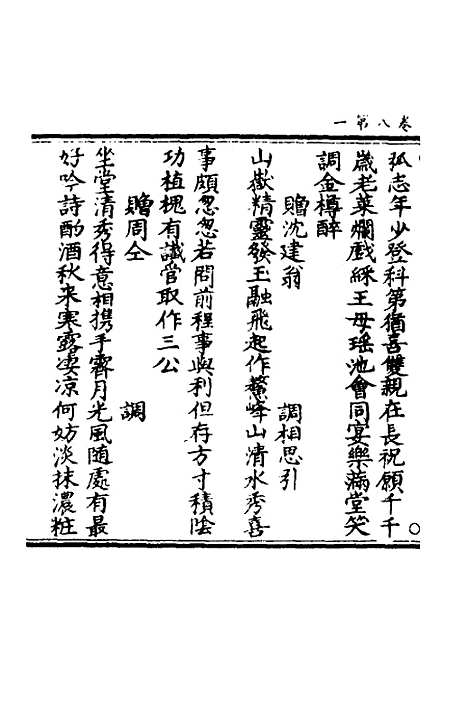 卷八第一
孤志年少登科第猶喜雙親在長祝願千千
歲老萊斕戲綵王母瑶池會同宴樂滿堂笑
調金樽醉
贈沈建翁　調相思引
山嶽精靈發玉融飛起作鰲峰山清水秀喜
事頗忽忽若問前程事與利但存方寸積陰
功植槐有讖管取作三公
贈周仝　調
坐堂清秀得意相携手霽月光風随處有最
好吟詩酌酒秋来寒露凄凉何妨淡抹濃粧